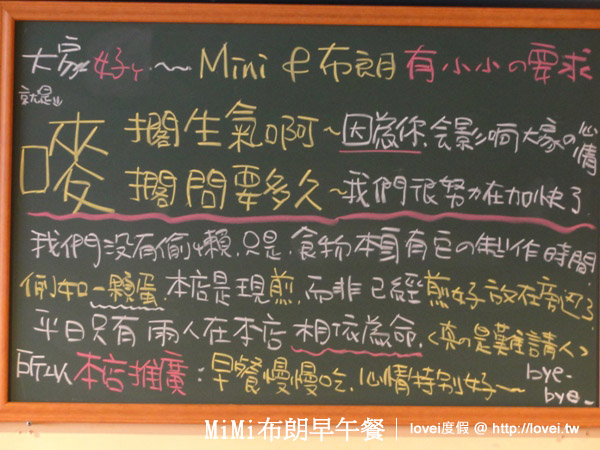 大家好ㄚ～～Mini & 布朗有小小の要求
就是
嘜 擱生氣啊~因為你會影响大家の心情
擱問要多久~我們很努力在加快了
我們沒有偷懶,只是,食物本身有它の制作時間
例如一顆蛋,本店是現煎,而非已經煎好放在旁邊了
平日只有兩人在本店相依為命,<真の是難請人>
所以本店推廣:早餐慢慢吃,心情特別好～ bye-
bye-
MiMi布朗早午餐 | lovei度假 @ http://lovei.tw